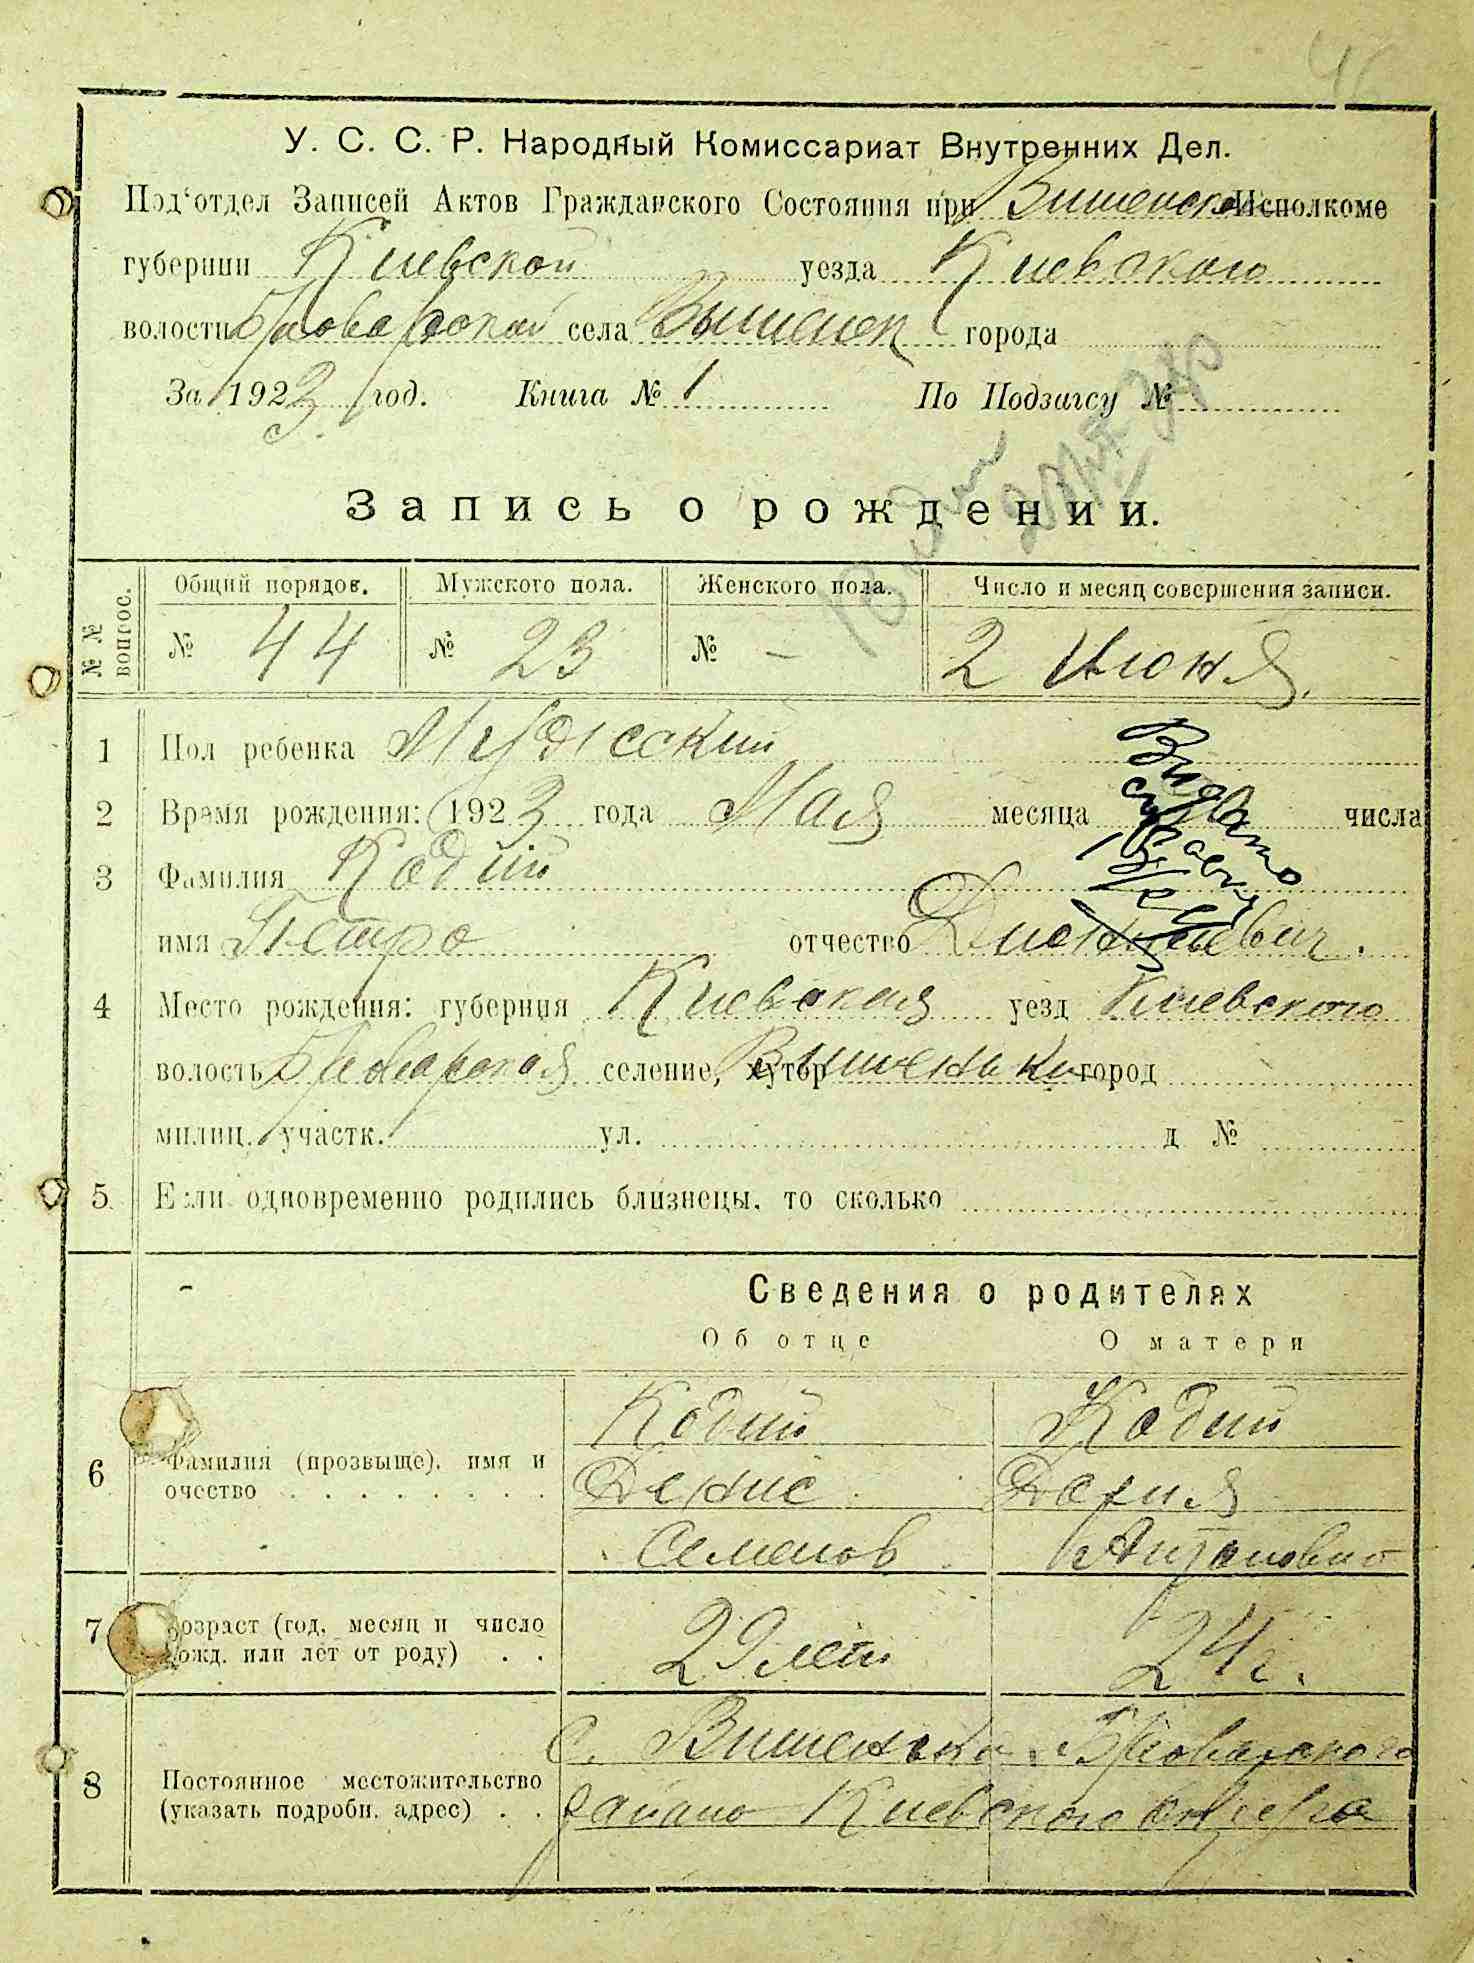 У. С. С. Р. Народный Комиссариат Внутренних Дел.
Под'отдел Записей Актов Гражданского Состояния при Вишенском Исполкоме
губернии Киевской уезда Киевского
волости Броварской села Вышеньк города
За 1923 год. Книга № 1 По Подзагсу №
Запись о рождении.
№№ вопрос.
Общий порядов. Мужского пола. Женского пола. Число и месяц совершения записи.
№ 44 № 23 № - 2 Июня.
1 Пол ребенка Мужеский
2 Время рождения: 1923 года Мая месяца числа
Видано
3 Фамилия Кодий
имя Петро отчество Дионисиевич.
4 Место рождения: губерния Киевская уезд Киевского
волость Броварская селение, хутор Вышеньки город
милиц. участк. ул. д №
5 Если одновременно родились близнецы, то сколько
Сведения о родителях
Об отце О матери
Кодий Кодий
6 Фамилия (прозвыще), имя и
очество . . . . . . . .
Денис Дария
Семенов Антоновна
7 Возраст (год, месяц и число
рожд. или лет от роду) . .
29 лет 24 г.
8 Постоянное местожительство
(указать подробн. адрес) . .
с. Вишеньки Броварского
района Киевского округа